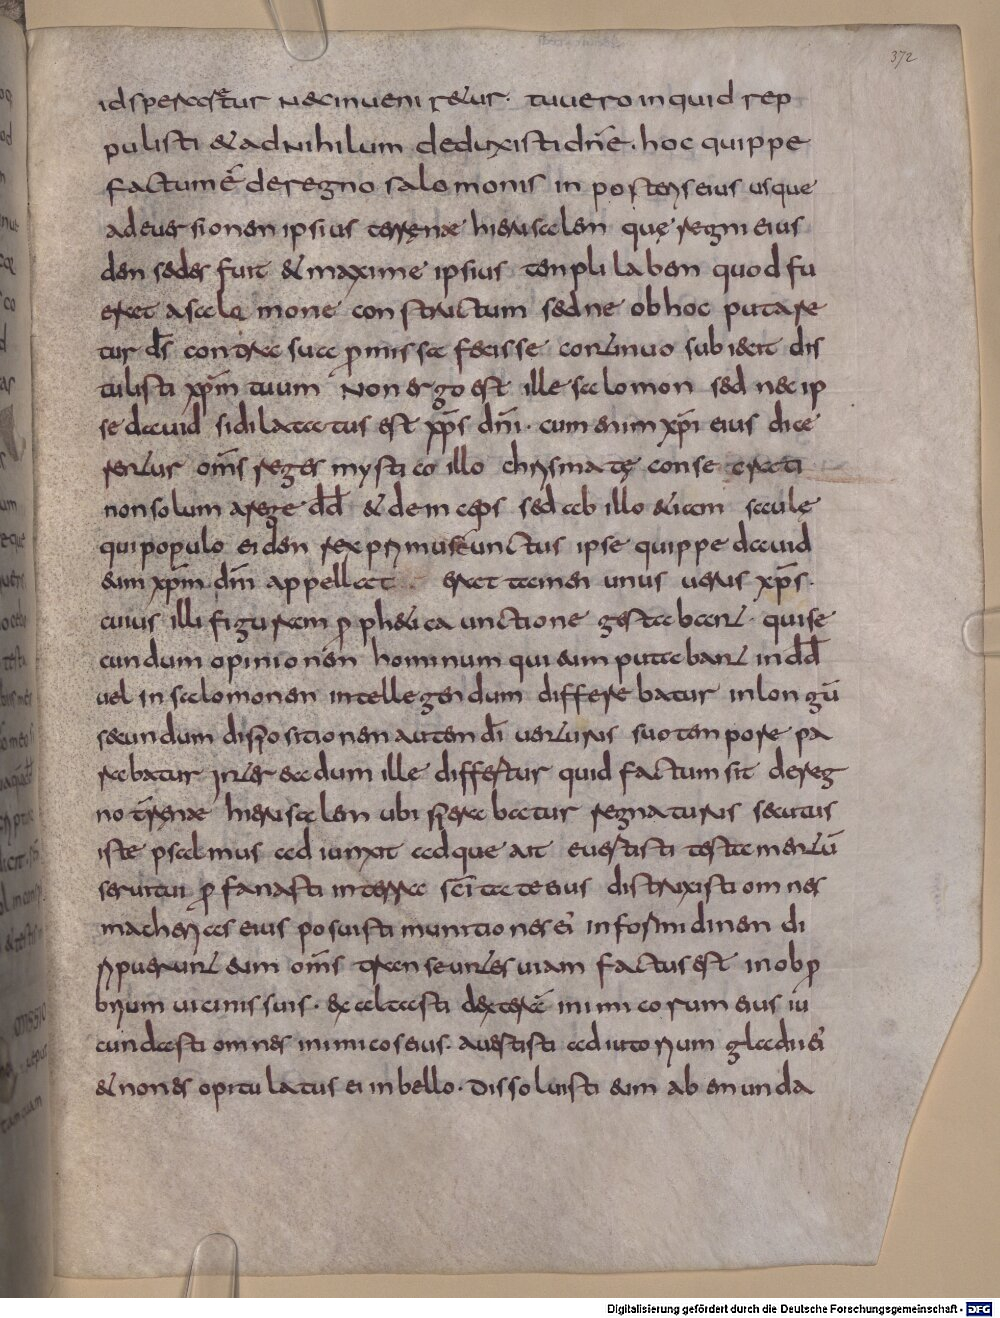 372
id speraretur nec inveniretur. tu vero inquid rep
pulisti & ad nihilum deduxisti dn̄e. hoc quippe
factum ē de regno salomonis in posteris eius usque
ad eversionem ipsius terrenae hierusalem quę regni eius
dem sedes fuit & maxime ipsius templi labem quod fu
erat a salomone constructum sed ne ob hoc putare
tur d̄s contra sua promissa fecisse continuo subiecit dis
tulisti xp̄m tuum Non ergo est ille salomon sed nec ip
se david si dilatatus est xp̄s dn̄i. cum enim xp̄i eius dice
rentur om̄s reges mystico illo chrismatę consecrati
non solum a rege dd̄ & deinceps sed ab illo &iam saule
qui populo eidem rex primus unctus ipse quippe david
eum xp̄m dn̄i appellat erat tamen unus verus xp̄s.
cuius illi figuram proph&ica unctione gestabant. qui se
cundum opinionem hominum qui eum putabant in dd̄
vel in salomonem intellegendum differebatur in longū
secundum dispositionem autem dī venturus suo tempore pa
rabatur Interea dum ille differtur quid factum sit de reg
no terrenae hierusalem ubi sperabatur regnaturus secutus
iste psalmus adiunxit adque ait evertisti testamentū
servi tui profanasti in terra sc̄itate eius distruxisti omnes
macherias eius posuisti munitiones eī in formidinem di
ripuerunt eum om̄s transeuntes viam factus est in obpro
brium vicinis suis. exaltasti dexterā inimicorum eius iu
cundasti omnes inimicos eius. avertisti adiutorium gladii eī
& non es opitulatus ei in bello. dissoluisti eum ab emunda
Digitalisierung gefördert durch die Deutsche Forschungsgemeinschaft - DFG